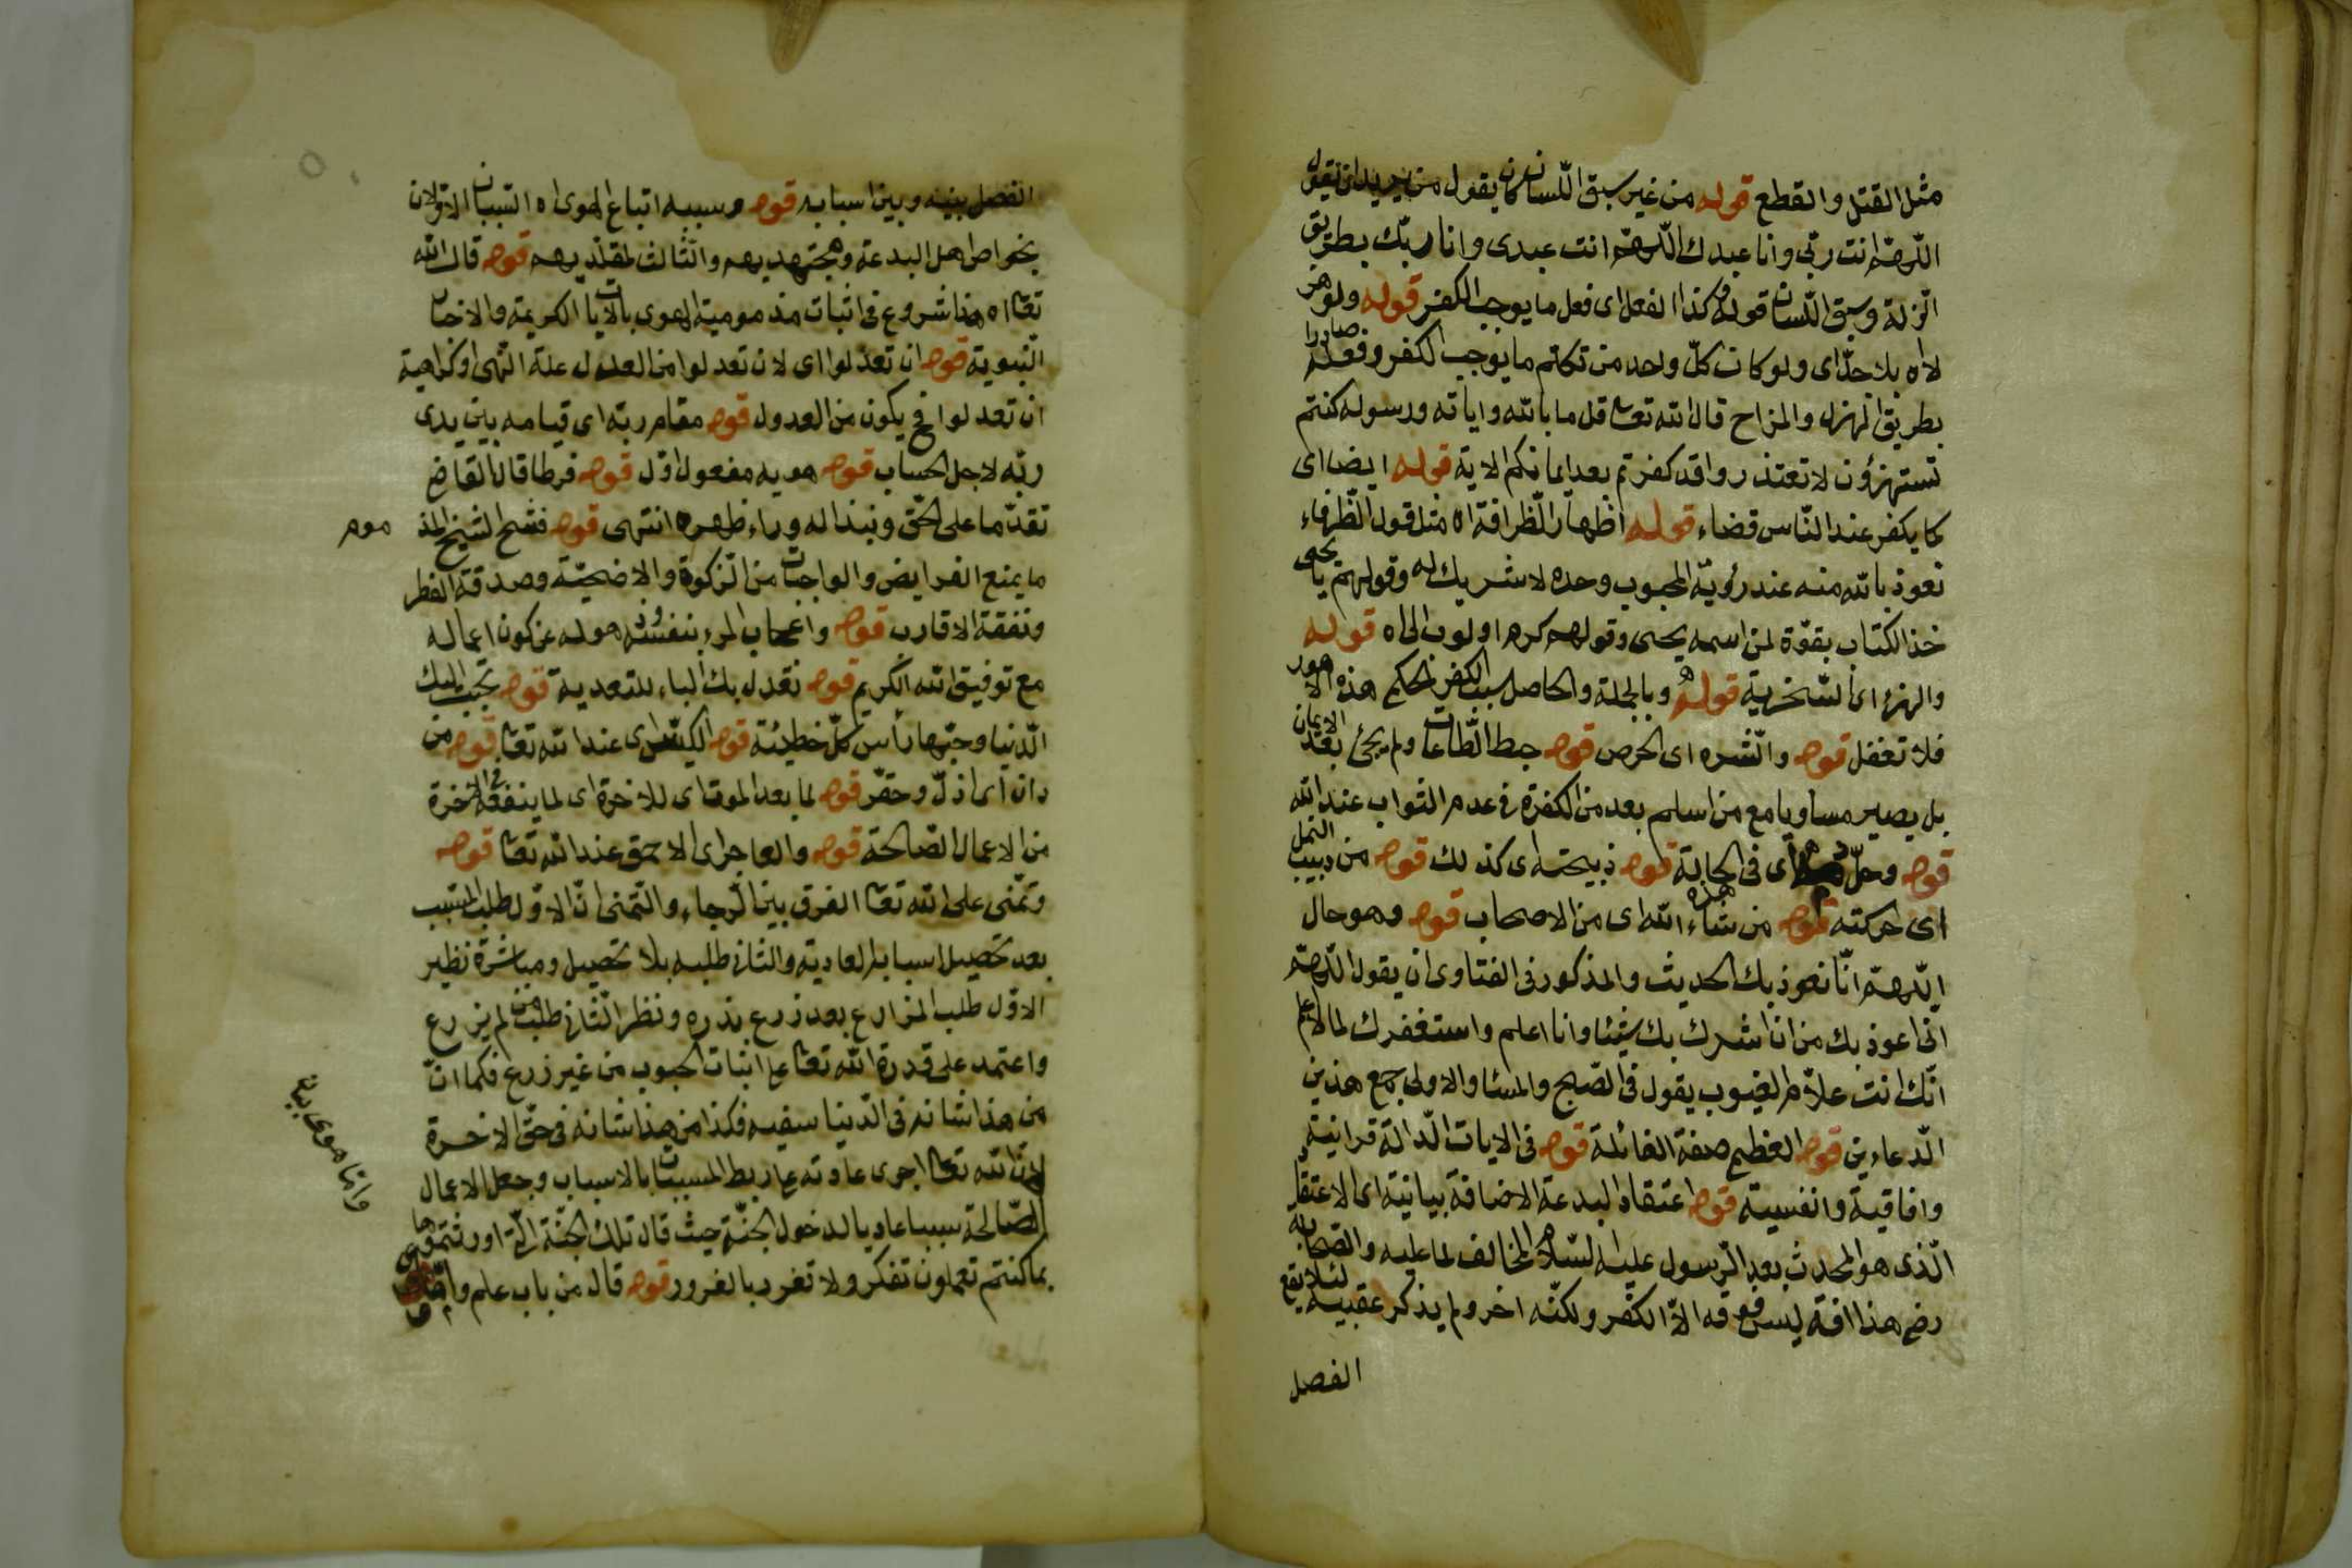 مثل القتل والقطع قوله من غير سبق اللسان كان يقول من يريد ان يقول
اللهم انت ربى وانا عبدك اللهم انت عبدى وانا ربك بطريق
الزلة وسبق اللسان قوله وكذا الفعل اى فعل ما يوجب الكفر قوله ولو هز
لا اه بل جدّ اى ولو كان كلّ واحد من تكلم ما يوجب الكفر وفعله صادرا
بطريق الهزل والمزاح قال الله تعا قل ما بالله واياته ورسوله كنتم
تستهزؤن لا تعتذروا قد كفرتم بعد ايمانكم الاية قوله ايضا اى
كما يكفر عند النّاس قضاء قوله اظهار الظرافة اه مثل قول الظرفاء
نعوذ بالله منه عند رؤية المحبوب وحده لا شريك له وقولهم يا يحيى
خذ الكتاب بقوّة لمن اسمه يحيى وقولهم كرها او لوب الى اه قوله
والهزء اى السّخرية قوله وبالجملة والحاصل سبب الكفر الحكمى هذه الامور
فلا تغفل قوله والشره اى الحرص قوله حبط الطاعات ولم يجئ بعد الايمان
بل يصير مساويا مع من اسلم بعد من الكفرة فى عدم الثواب عند الله
قوله وحلّ اى فى الحالة هذه قوله ذبيحته اى كذلك قوله من دبيب النمل
اى حركته قوله من شاء الله اى من الاصحاب قوله وهو حال
اللهمّ انّا نعوذ بك الحديث والمذكور فى الفتاوى ان يقول اللهمّ
انى اعوذ بك من ان اشرك بك شيئا وانا اعلم واستغفرك لما لا اعلم
انّك انت علاّم الغيوب يقول فى الصّبح والمسا والاولى جمع هذين
الدعاءين قوله العظيم صفة الغائلة قوله فى الايات الدالة قرانية
وافاقية وانفسية قوله اعتقاد البدعة الاضافة بيانية اى الاعتقاد
الّذى هو المحدث بعد الرسول عليه السّلام المخالف لما عليه والصحابة
رض هذا افة ليس فوقه الاّ الكفر ولكنّه اخر ولم يذكر عقيبه لئلا يقع
الفصل
الفصل بينه وبين اسبابه قوله وسببه اتباع الهوى اه السببان الاولان
بخواص اهل البدعة ومجتهديهم والثالث لمقلّديهم قوله قال الله
تعا اه هذا شروع فى اثبات مذمومية الهوى بالايات الكريمة والاخبار
النّبوية قوله ان تعدلوا اى لان تعدلوا من العدل علة النّهى او كراهية
ان تعدلوا فح يكون من العدول قوله مقام ربّه اى قيامه بين يدى
ربّه لاجل الحساب قوله هويه مفعول اوّل قوله فرطا قال القاضى
تقدّما على الحقّ ونبذا له وراء ظهره انتهى قوله فشحّ الشيخ المذ
موم
ما يمنع الفرايض والواجبات من الزكوة والاضحيّة وصدقة الفطر
ونفقة الاقارب قوله واعجاب المرء بنفسه وذهوله عن كون اعماله
مع توفيق الله الكريم قوله نقدل بك الباء للتعدية قوله تحبب اليك
الدّنيا وحبّها رأس كلّ خطيئة قوله الكيّس اى عند الله تعا قوله من
دان اى اذلّ وحقّر قوله لما بعد الموت اى للاخرة اى لما ينفعه فى الاخرة
من الاعمال الصّالحة قوله والعاجز اى الاحمق عند الله تعا قوله
وتمنّى على الله تعا الفرق بين الرجاء والتّمنى انّ الاوّل طلب المسبب
بعد تحصيل اسبابه العادية والثانى طلبه بلا تحصيل ومباشرة نظير
الاوّل طلب المزارع بعد زرع بذره ونظير الثانى طلب من لم يزرع
واعتمد على قدرة الله تعا على انبات الحبوب من غير زرع فكما انّ
من هذا شانه فى الدّنيا سفيه فكذا من هذا شانه فى حقّ الاخرة
لانّ الله تعا اجرى عادته على ربط المسببات بالاسباب وجعل الاعمال
الصّالحة سببا عاديا لدخول الجنّة حيث قال تلك الجنّة الّتى اورثتموها
بما كنتم تعملون تفكر ولا تغرر بالغرور قوله قال من باب علم